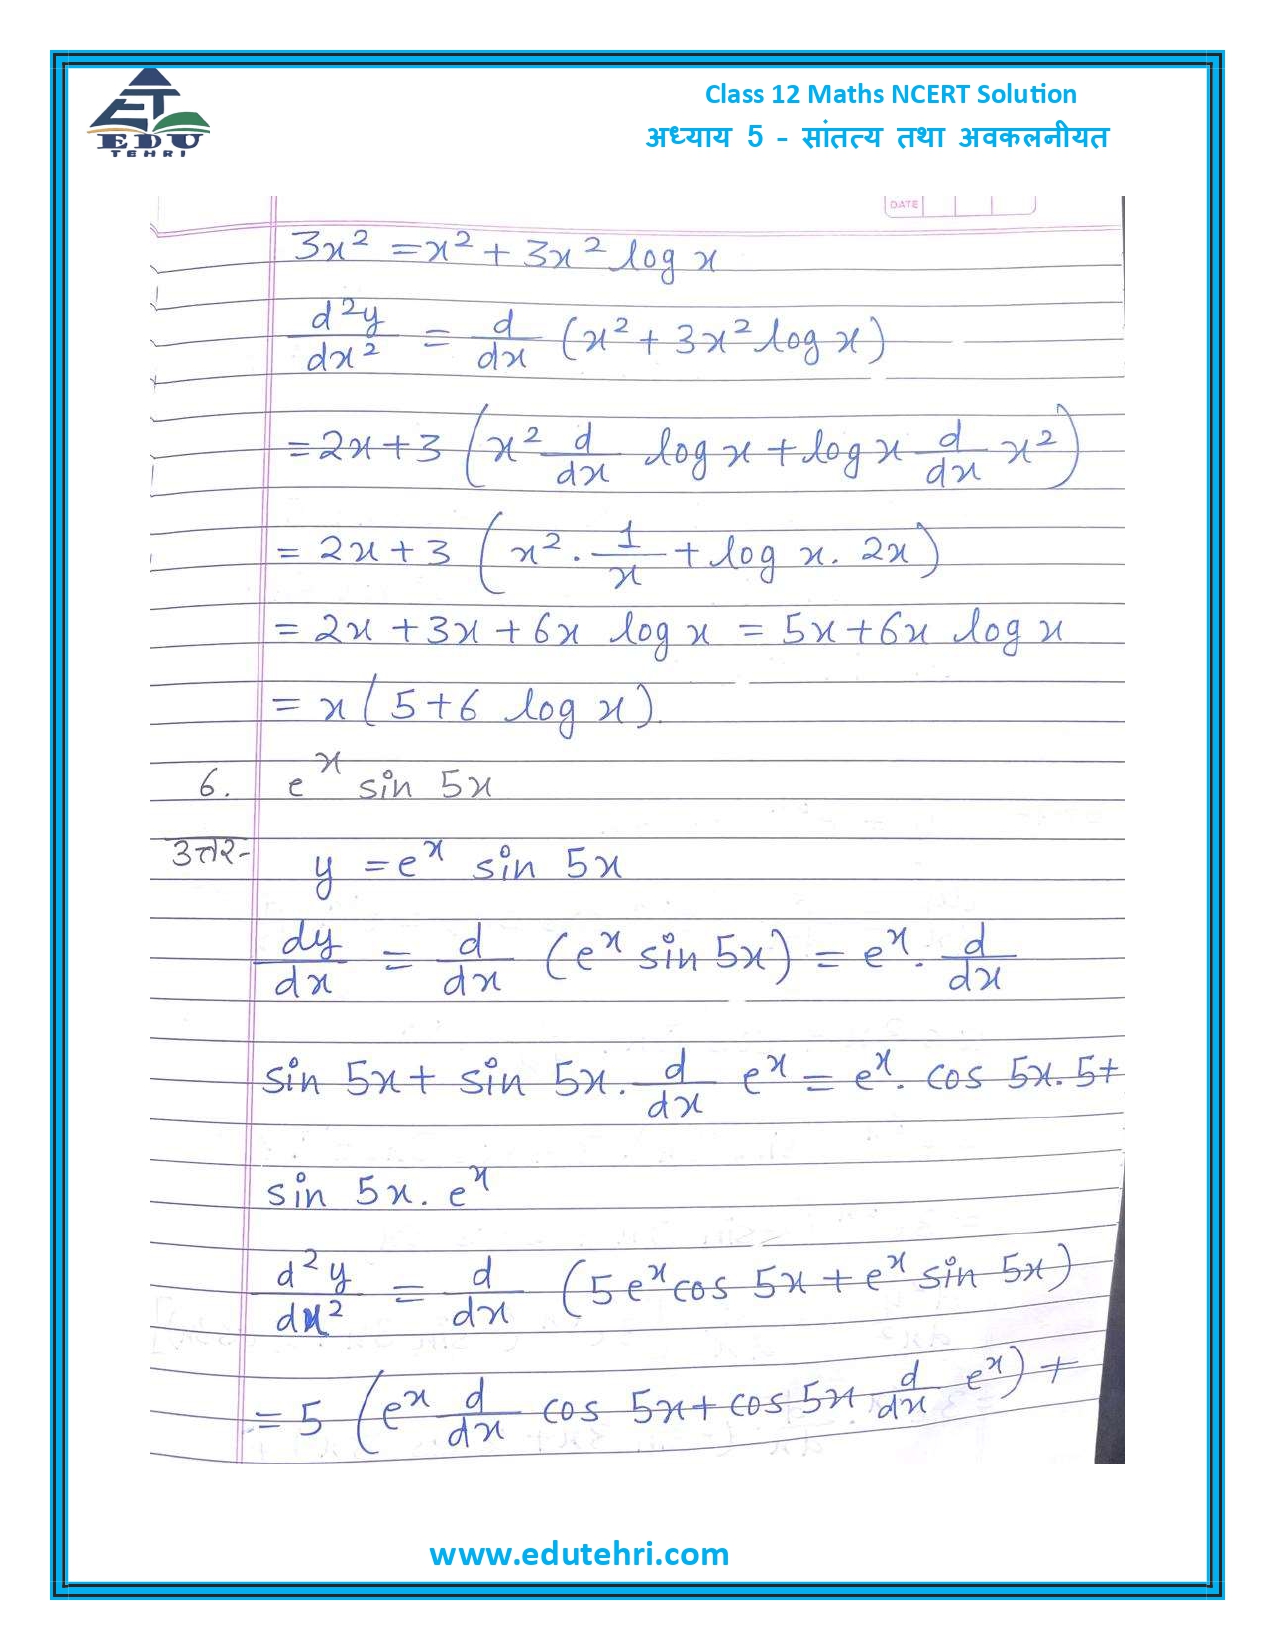 Class 12 Maths NCERT Solution
अध्याय 5 - सांतत्य तथा अवकलनीयत
EDU
TEHRI
DATE
3x² = x² + 3x² log x
d²y/dx² = d/dx (x² + 3x² log x)
= 2x + 3 (x² d/dx log x + log x d/dx x²)
= 2x + 3 (x² · 1/x + log x · 2x)
= 2x + 3x + 6x log x = 5x + 6x log x
= x (5 + 6 log x).
6. eˣ sin 5x
उत्तर- y = eˣ sin 5x
dy/dx = d/dx (eˣ sin 5x) = eˣ · d/dx
sin 5x + sin 5x · d/dx eˣ = eˣ · cos 5x · 5 +
sin 5x · eˣ
d²y/dx² = d/dx (5 eˣ cos 5x + eˣ sin 5x)
= 5 (eˣ d/dx cos 5x + cos 5x d/dx eˣ) +
www.edutehri.com